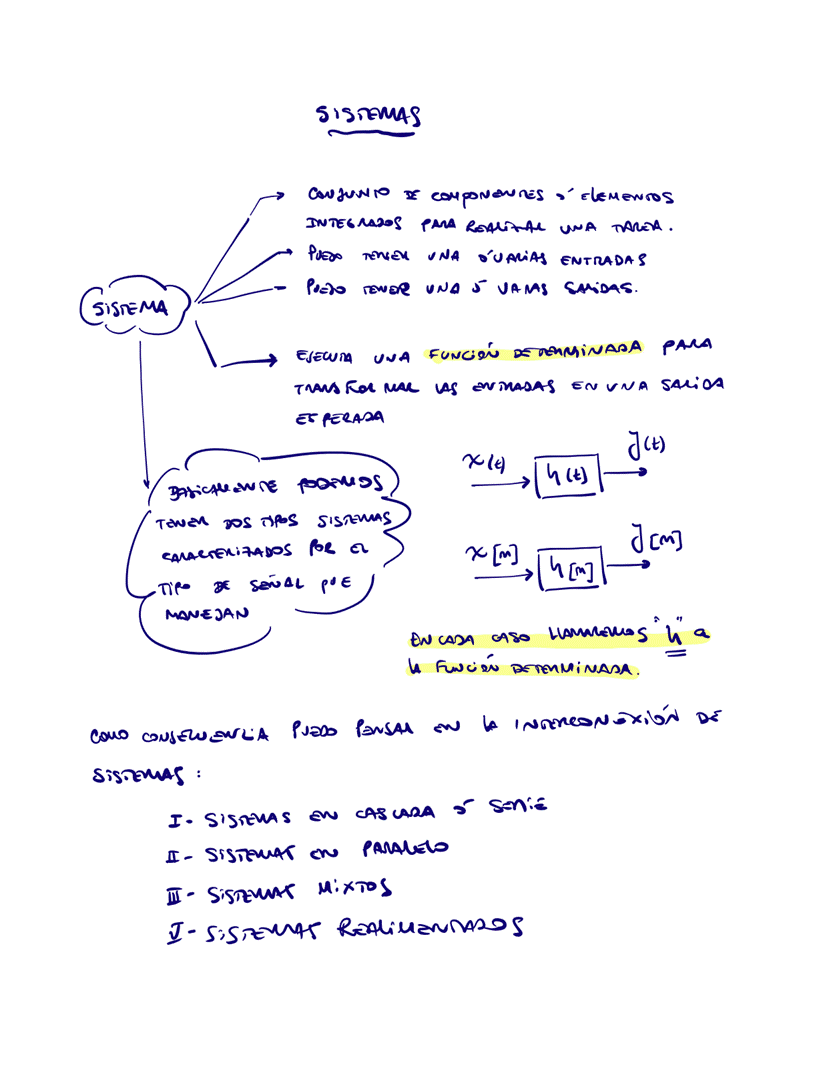 SISTEMAS
CONJUNTO DE COMPONENTES Ó ELEMENTOS
INTEGRADOS PARA REALIZAR UNA TAREA.
PUEDO TENER UNA Ó VARIAS ENTRADAS
PUEDO TENER UNA Ó VARIAS SALIDAS.
SISTEMA
EJECUTA UNA FUNCIÓN DETERMINADA PARA
TRANSFORMAR LAS ENTRADAS EN UNA SALIDA
ESPERADA
x(t) h(t) y(t)
x[m] h[m] y[m]
BASICAMENTE PODEMOS
TENER DOS TIPOS SISTEMAS
CARACTERIZADOS POR EL
TIPO DE SEÑAL QUE
MANEJAN
EN CADA CASO LLAMAREMOS "h" a
la FUNCIÓN DETERMINADA.
COMO CONSECUENCIA PUEDO PENSAR EN LA INTERCONEXIÓN DE
SISTEMAS :
I - SISTEMAS EN CASCADA Ó SERIE
II - SISTEMAS EN PARALELO
III - SISTEMAS MIXTOS
V - SISTEMAS REALIMENTADOS